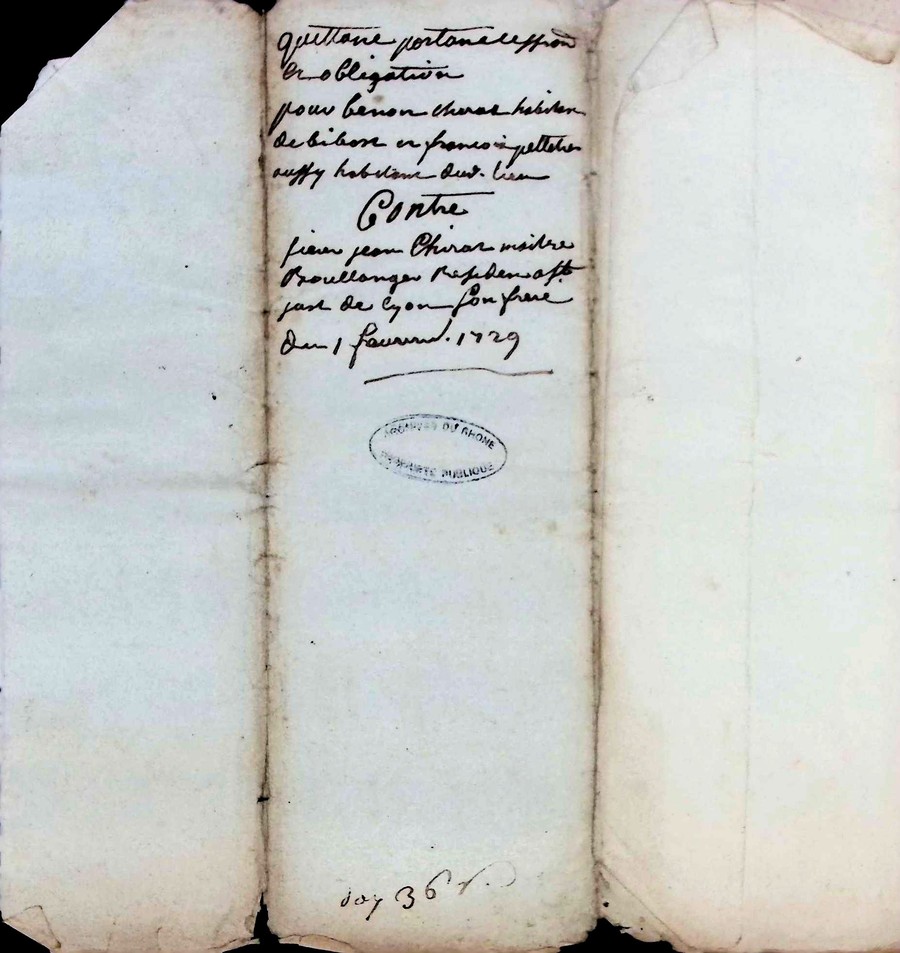 quittance portant cession
et obligation
pour benon chirat habitan
de bibost et francois pelletier
aussy habitant dud. lieu
Contre
sieur jean Chirat maitre
Boullanger Residen a st
just de lyon son frere
du 1 fevrier 1729
ARCHIVES DU RHONE
PROPRIETE PUBLIQUE
36